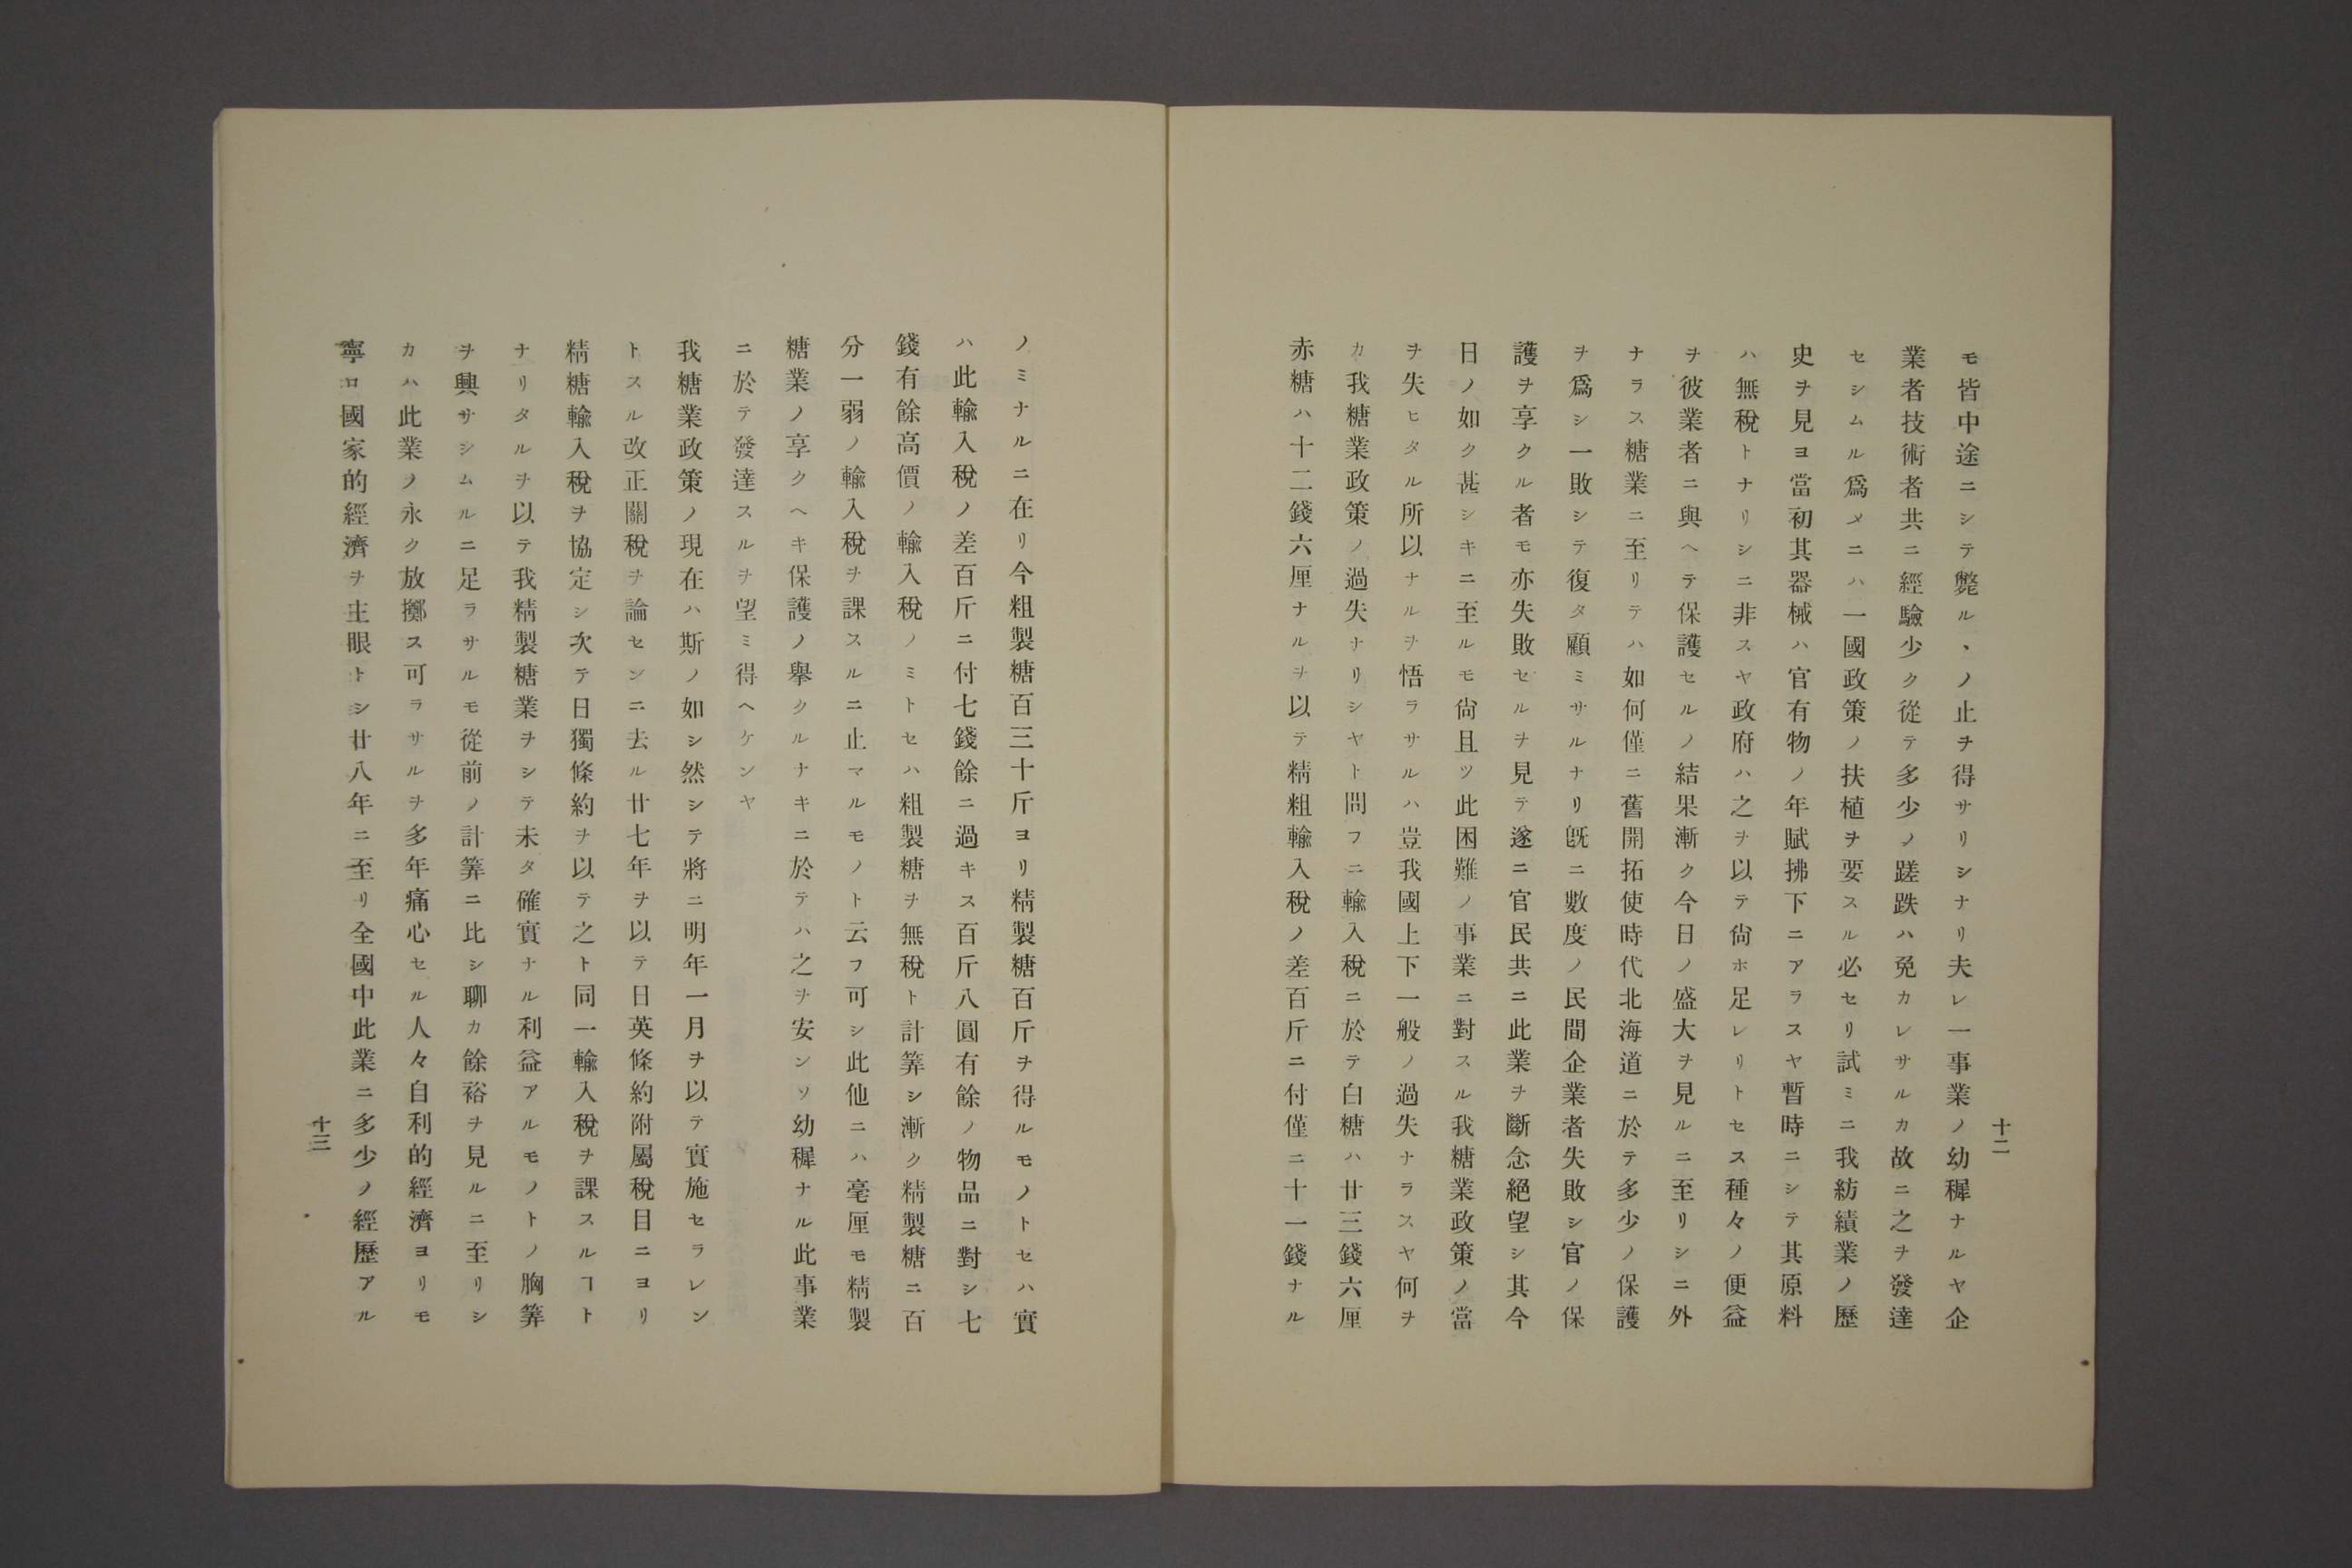 十二
モ皆中途ニシテ斃ルヽノ止ヲ得サリシナリ夫レ一事業ノ幼穉ナルヤ企
業者技術者共ニ經驗少ク從テ多少ノ蹉跌ハ免カレサルカ故ニ之ヲ發達
セシムル爲メニハ一國政策ノ扶植ヲ要スル必セリ試ミニ我紡績業ノ歷
史ヲ見ヨ當初其器械ハ官有物ノ年賦拂下ニアラスヤ暫時ニシテ其原料
ハ無稅トナリシニ非スヤ政府ハ之ヲ以テ尙ホ足レリトセス種々ノ便益
ヲ彼業者ニ與ヘテ保護セルノ結果漸ク今日ノ盛大ヲ見ルニ至リシニ外
ナラス糖業ニ至リテハ如何僅ニ舊開拓使時代北海道ニ於テ多少ノ保護
ヲ爲シ一敗シテ復タ顧ミサルナリ旣ニ數度ノ民間企業者失敗シ官ノ保
護ヲ享クル者モ亦失敗セルヲ見テ遂ニ官民共ニ此業ヲ斷念絕望シ其今
日ノ如ク甚シキニ至ルモ尙且ツ此困難ノ事業ニ對スル我糖業政策ノ當
ヲ失ヒタル所以ナルヲ悟ラサルハ豈我國上下一般ノ過失ナラスヤ何ヲ
カ我糖業政策ノ過失ナリシヤト問フニ輸入稅ニ於テ白糖ハ廿三錢六厘
赤糖ハ十二錢六厘ナルヲ以テ精粗輸入稅ノ差百斤ニ付僅ニ十一錢ナル
ノミナルニ在リ今粗製糖百三十斤ヨリ精製糖百斤ヲ得ルモノトセハ實
ハ此輸入稅ノ差百斤ニ付七錢餘ニ過キス百斤八圓有餘ノ物品ニ對シ七
錢有餘高價ノ輸入稅ノミトセハ粗製糖ヲ無稅ト計算シ漸ク精製糖ニ百
分一弱ノ輸入稅ヲ課スルニ止マルモノト云フ可シ此他ニハ毫厘モ精製
糖業ノ享クヘキ保護ノ擧クルナキニ於テハ之ヲ安ンソ幼穉ナル此事業
ニ於テ發達スルヲ望ミ得ヘケンヤ
我糖業政策ノ現在ハ斯ノ如シ然シテ將ニ明年一月ヲ以テ實施セラレン
トスル改正關稅ヲ論センニ去ル廿七年ヲ以テ日英條約附屬稅目ニヨリ
精糖輸入稅ヲ協定シ次テ日獨條約ヲ以テ之ト同一輸入稅ヲ課スルヿト
ナリタルヲ以テ我精製糖業ヲシテ未タ確實ナル利益アルモノトノ胸算
ヲ興サシムルニ足ラサルモ從前ノ計算ニ比シ聊カ餘裕ヲ見ルニ至リシ
カハ此業ノ永ク放擲ス可ラサルヲ多年痛心セル人々自利的經濟ヨリモ
寧ロ國家的經濟ヲ主眼トシ廿八年ニ至リ全國中此業ニ多少ノ經歷アル
十三